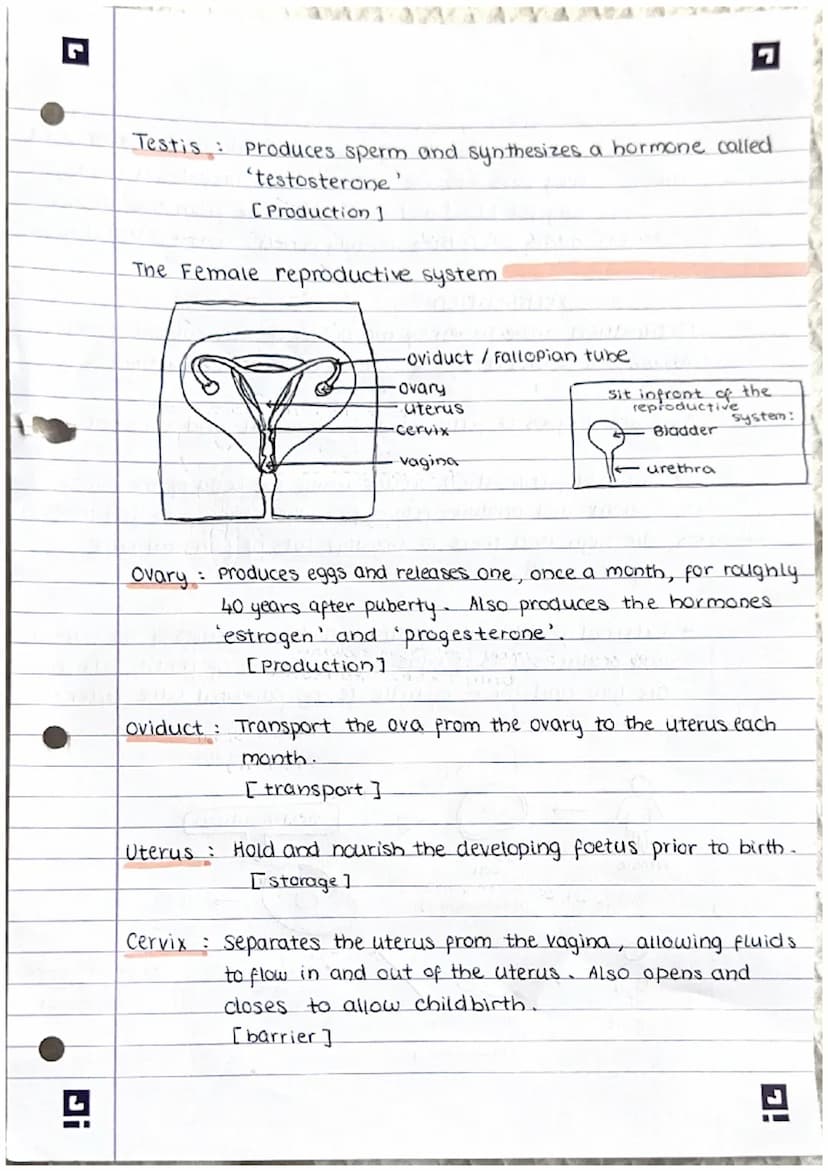 Testis : Produces sperm and synthesizes a hormone called
'testosterone'
[Production]
The Female reproductive system
oviduct / Fallopian tube
ovary
uterus
cervix
vagina
Sit infront of the
reproductive
system:
Bladder
urethra
Ovary : Produces eggs and releases one, once a month, for roughly
40 years after puberty. Also produces the hormones
'estrogen' and 'progesterone'.
[Production]
Oviduct : Transport the ova from the ovary to the uterus each
month.
[transport]
Uterus : Hold and nourish the developing foetus prior to birth.
[storage]
Cervix : Separates the uterus from the vagina, allowing fluids
to flow in and out of the uterus. Also opens and
closes to allow childbirth.
[barrier]